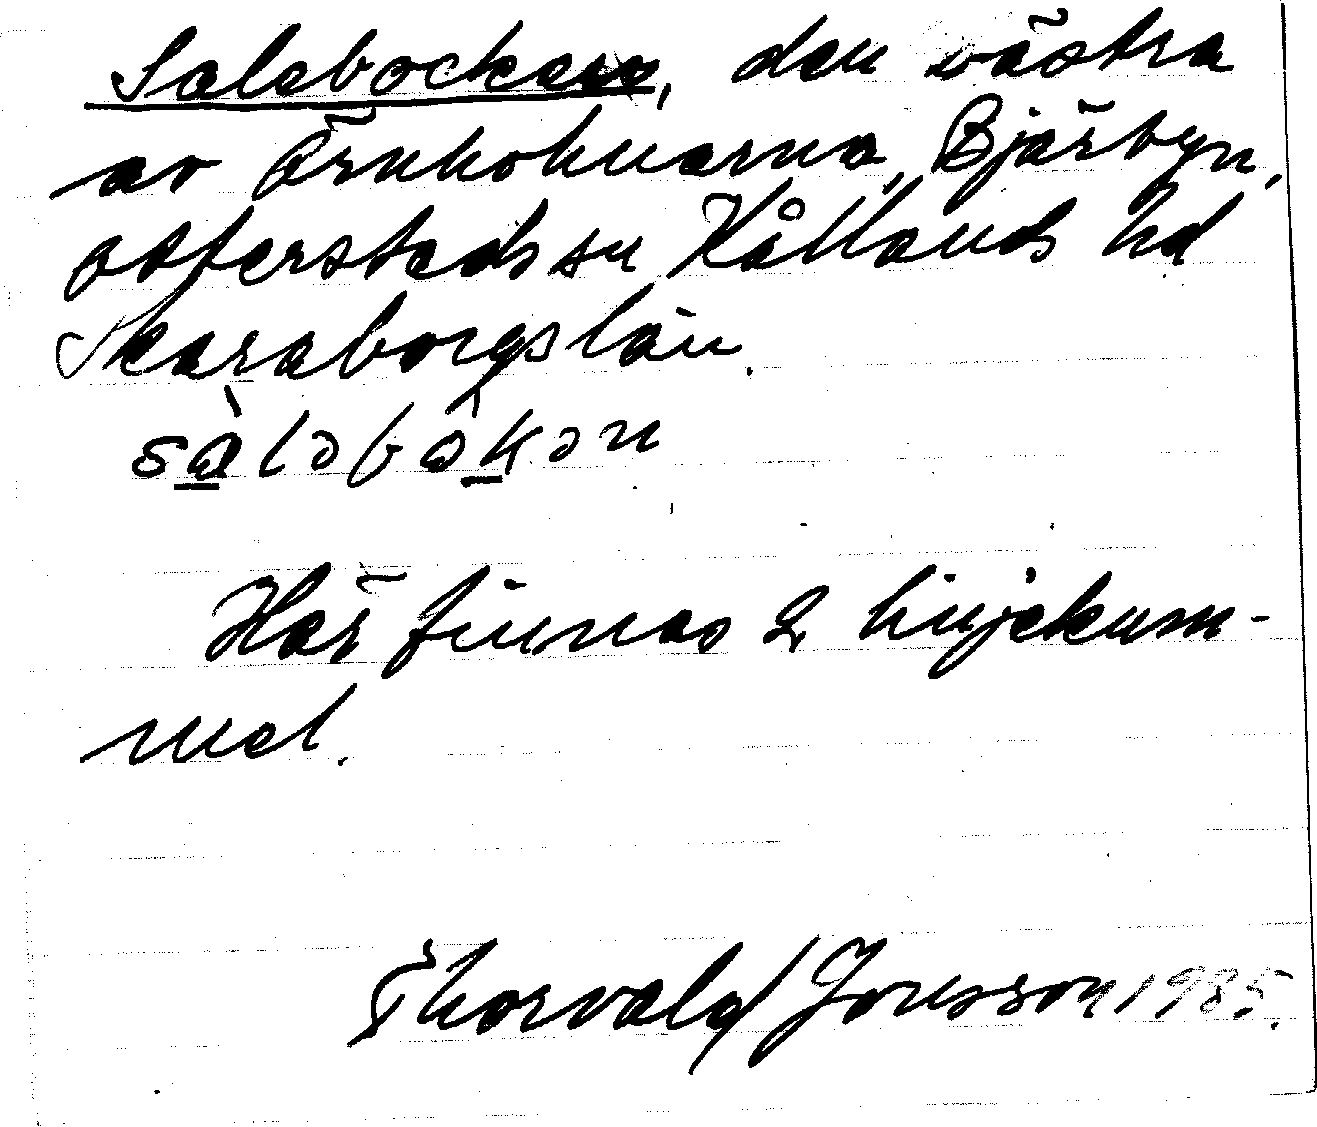 Salebocken, den västra
av Örnkohuarna, Bjärbyn,
Otterstads sn Kållands hd
Skaraborgs län.
sàləbôkən
Här finnas 2 linjekum-
mel.
Thorvald Jonsson 1985.